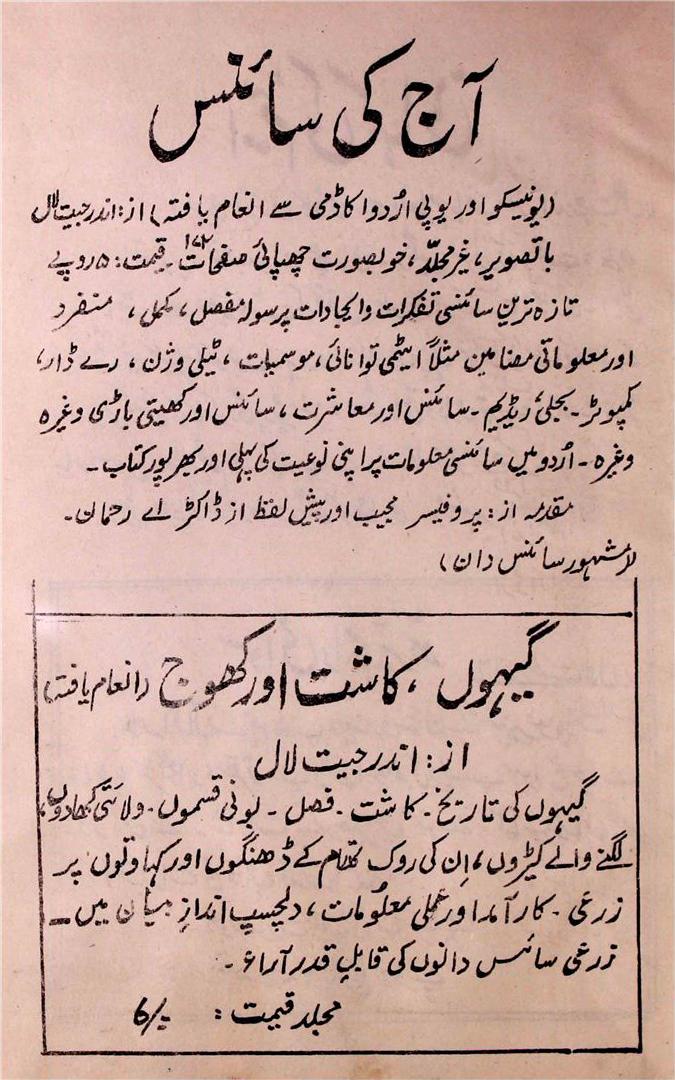 آج کی سائنس
(یونیسکو اور یوپی اردو اکاڈمی سے انعام یافتہ) از: اندر جیت لال
باتصویر، غیر مجلّد، خوبصورت چھپائی صفحات ۱۷۲ ۔ قیمت: ۵ روپے
تازہ ترین سائنسی تفکرات وایجادات پر سولہ مفصل، مکمل، منفرد
اور معلوماتی مضامین مثلاً ایٹمی توانائی، موسمیات، ٹیلی وژن، رے ڈار،
کمپوٹر۔ بجلی، ریڈیم۔ سائنس اور معاشرت، سائنس اور کھیتی باڑی وغیرہ
وغیرہ۔ اُردو میں سائنسی معلومات پر اپنی نوعیت کی پہلی اور بھرپور کتاب۔
مقدمہ از: پروفیسر مجیب اور پیش لفظ از ڈاکٹر اے رحمان۔
(مشہور سائنس دان)
گیہوں، کاشت اور کھوج (انعام یافتہ)
از: اندر جیت لال
گیہوں کی تاریخ۔ کاشت۔ فصل۔ بونی قسموں۔ ولائتی کھادوں،
لگنے والے کیڑوں، اِن کی روک تھام کے ڈھنگوں اور کہاوتوں پر
زرعی۔ کارآمد اور عملی معلُومات، دلچسپ اندازِ بیان میں۔
زرعی سائنس دانوں کی قابلِ قدر آراء۔
مجلد قیمت: 6/-